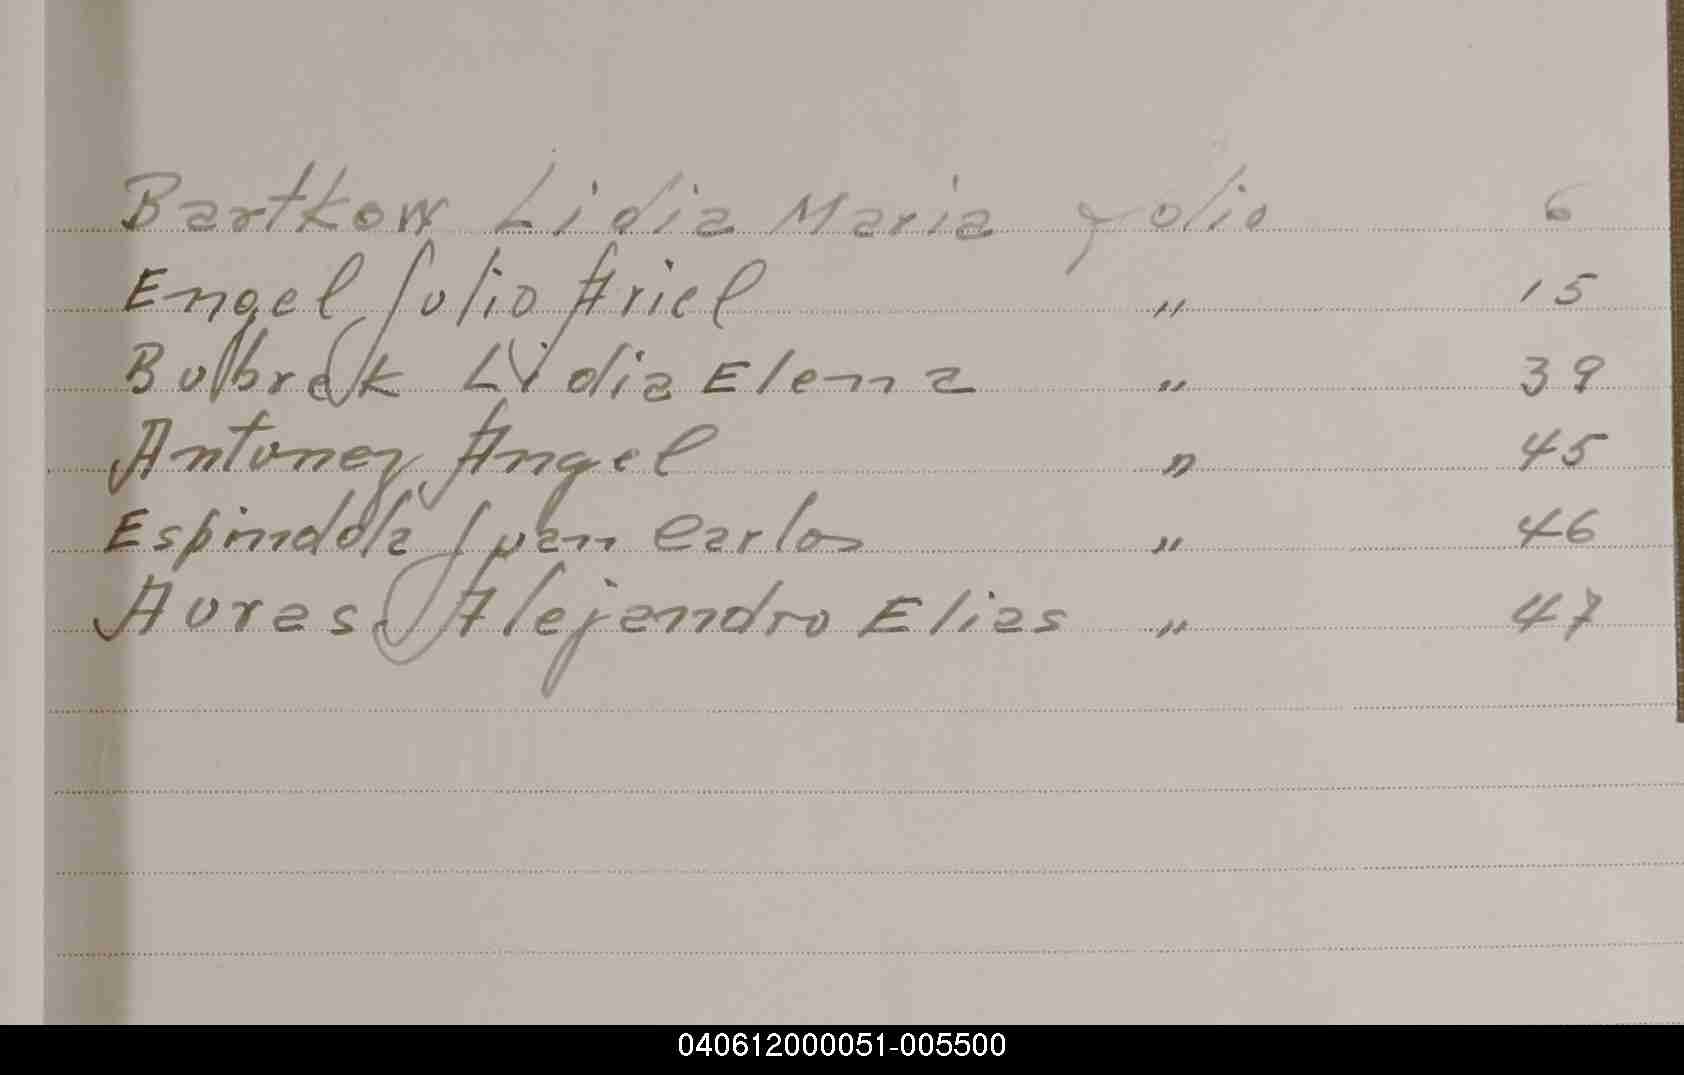 Bartkow Lidia Maria folio 6
Engel Julio Ariel " 15
Bulbrek Lidia Elena " 39
Antunez Angel " 45
Espindola Juan Carlos " 46
Auras Alejandro Elias " 47
040612000051-005500